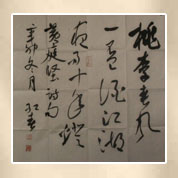 桃李春风
一杯酒江湖
夜雨十年灯
黄庭坚诗句
辛卯冬月